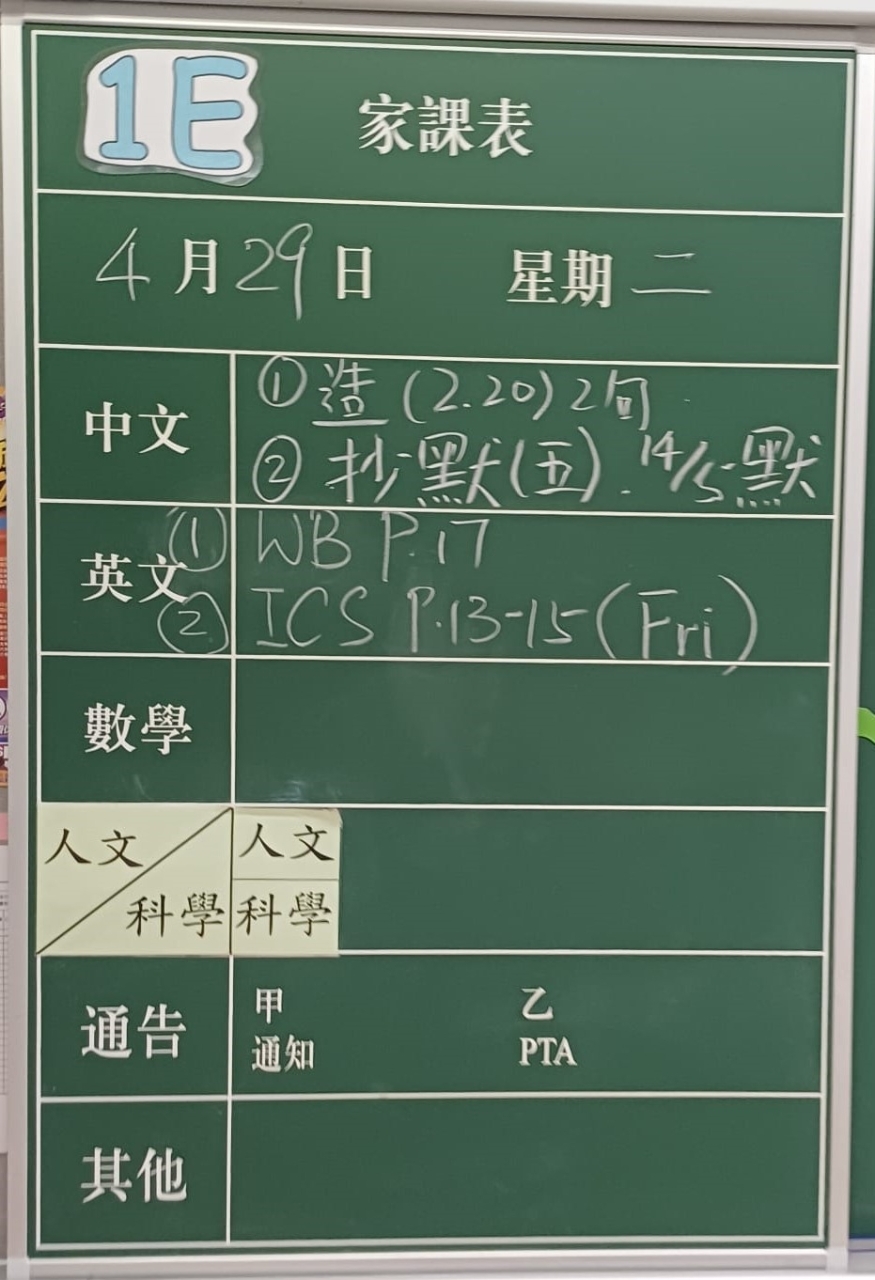 1E 家課表
4月29日 星期二
中文 ① 造(2.20)2句
② 抄默(五). 14/5默
英文 (1) WB P.17
(2) ICS P.13-15 (Fri)
數學
人文 人文
科學 科學
通告 甲 乙
通知 PTA
其他